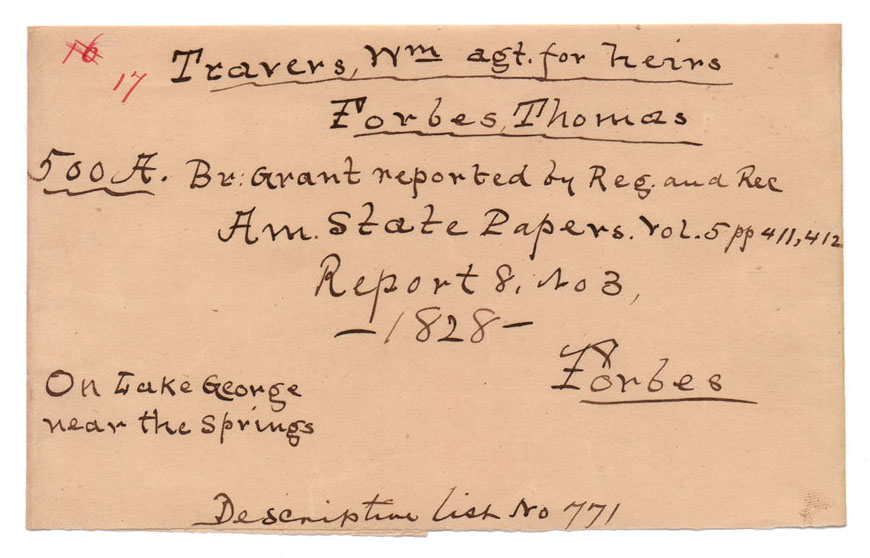 16
17
Travers, Wm agt. for heirs
Forbes, Thomas
500 A. Br: Grant reported by Reg. and Rec
Am. State Papers. Vol. 5 pp 411, 412
Report 8, No 3,
— 1828 —
Forbes
On Lake George
near the Springs
Descriptive list No 771